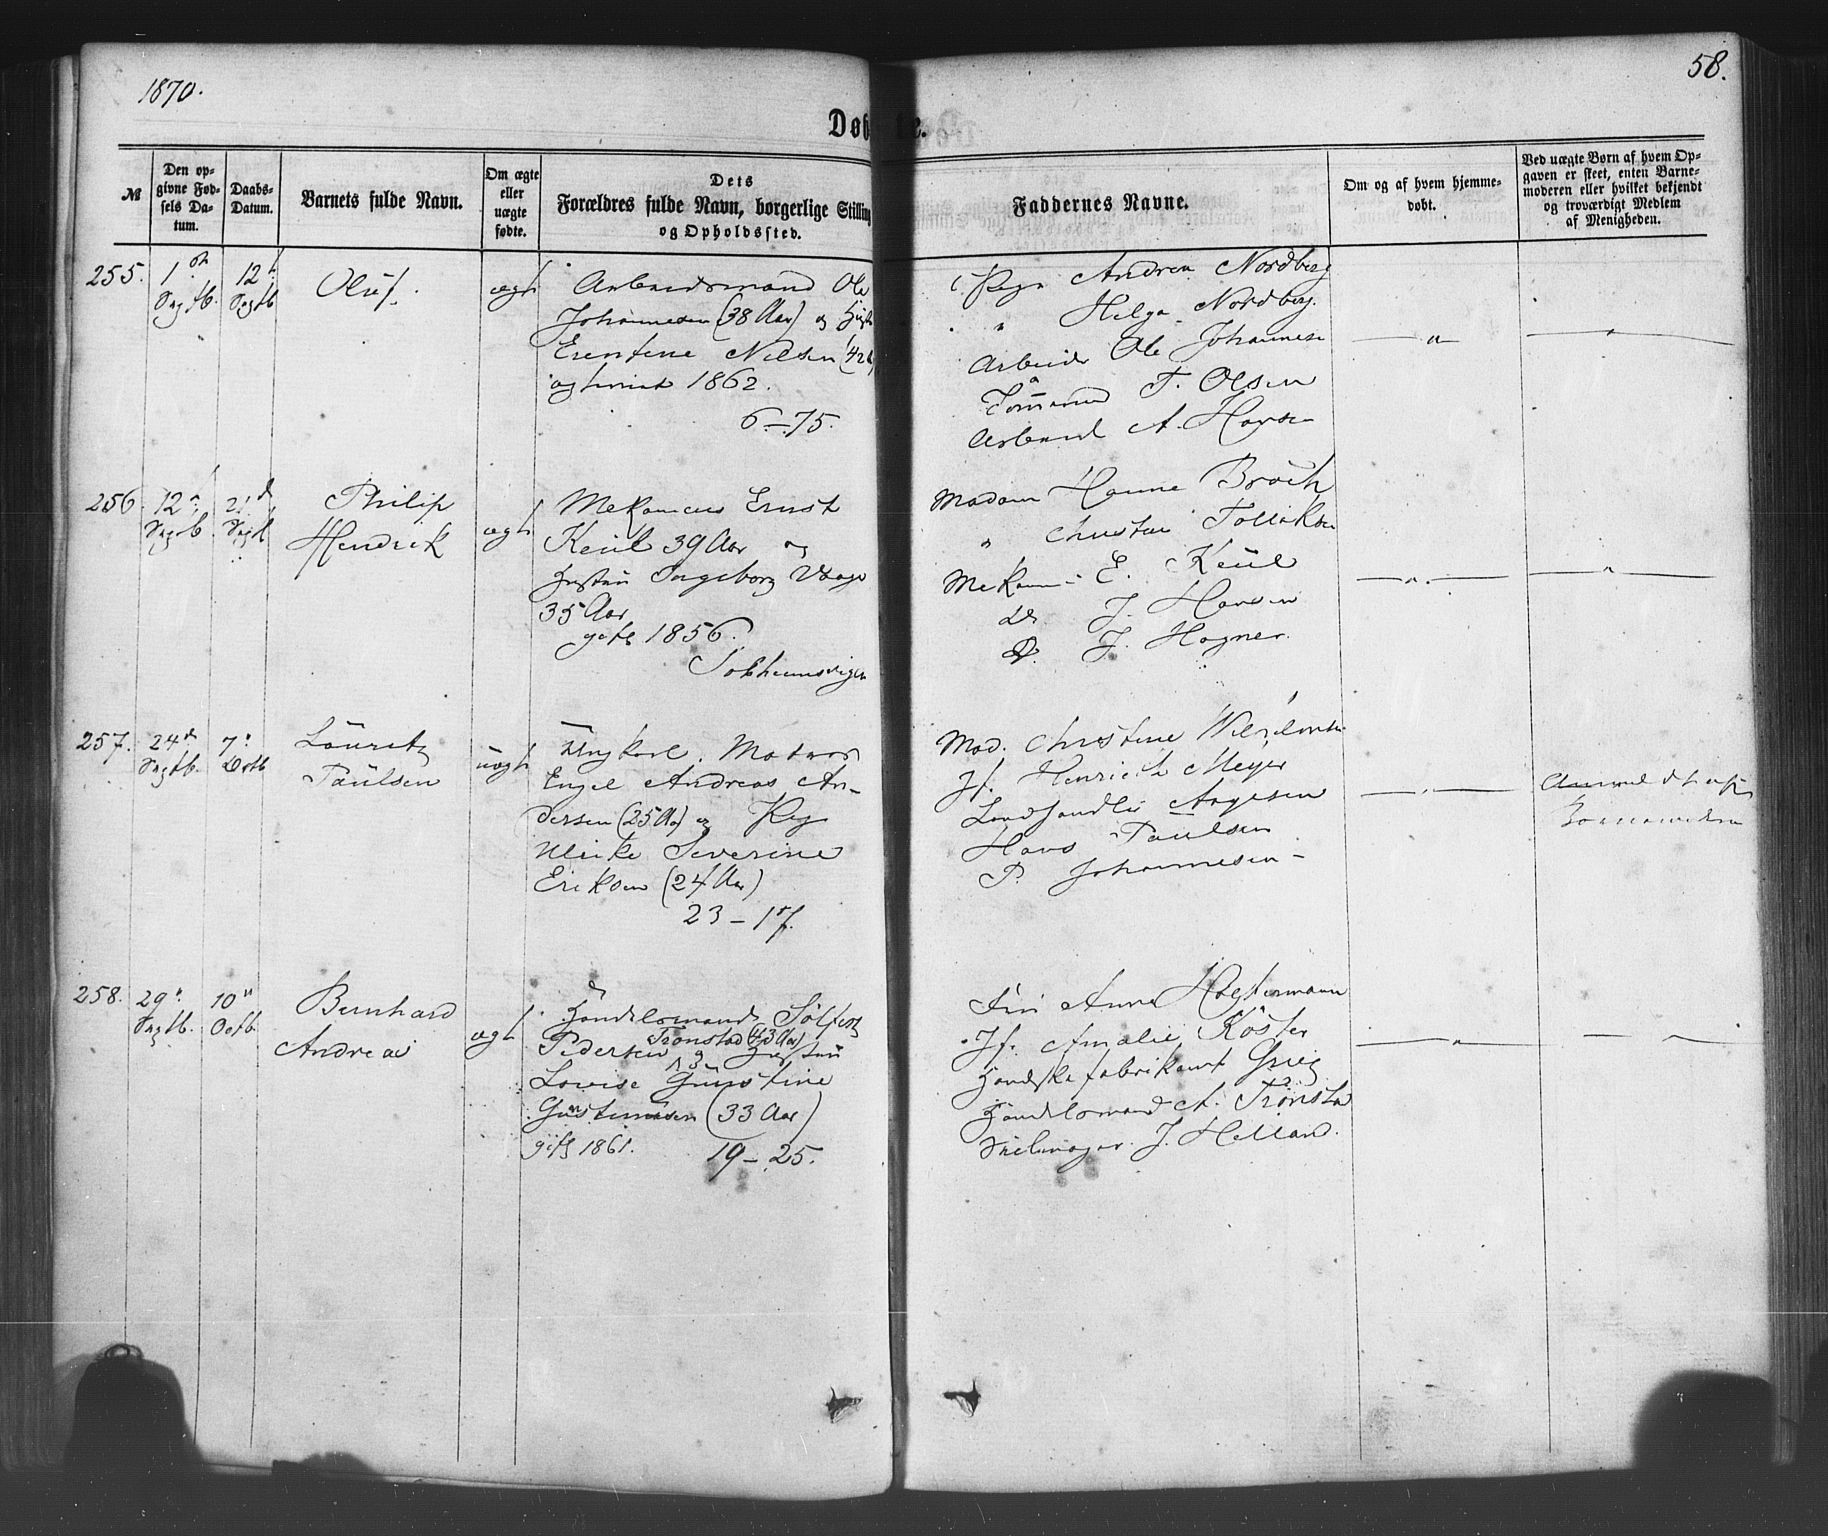 1870.
58.
Døbte.
№
Den opgivne Fødsels Datum.
Daabs-Datum.
Barnets fulde Navn.
Om ægte eller uægte fødte.
Dets Forældres fulde Navn, borgerlige Stilling og Opholdssted.
Faddernes Navne.
Om og af hvem hjemmedøbt.
Ved uægte Børn af hvem Opgaven er skeet, enten Barnemoderen eller hvilket bekjendt og troværdigt Medlem af Menigheden.
255.
1
Septb.
12
Septb
Oluf.
ægte
Arbeidsmand Ole
Johannesen (38 Aar) og
Erentine Nilsen (42
1862.
6–75.
Pige Andrea Nordberg
" Helga Nordberg.
Arbeids Ole Johannesen
Tømmermd T. Olsen
Arbeid A. Hansen
— " —
"
256
12
Septb
21
Septb
Philip
Hendrik
ægte
Mekanicus Ernst
Keül 39 Aar og
Hustru Ingeborg Waage
35 Aar
gift 1856.
Solheimsvigen
Madam Hanne Broch
" Christine
Mekani E. Keül
Do. J. Hansen
Do. J. Hagner.
— " —
"
257.
24
Septb.
7
Octb
Lauritz
Paulsen
uægte
Ungkarl. Matros
Engel Andreas An-
dersen (25 Aar) og Pige
Ulrike Severine
Eriksen (24 Aar)
23–17.
Mad. Christine
Jf. Henriette Meyer
Landhandler Aagesen
Hans Paulsen
P. Johannesen
— " —
Anmeldt af
Barnemoderen
258.
29
Septb.
10
Octb.
Bernhard
Andreas
ægte
Handelsmand Sølfest
Pedersen Trønstad (43 Aar) og Hustru
Lovise Günstine
Gunstensen (33 Aar)
gift 1861. 19–25.
Anna Holtermann
Jf. Amalie Köster
Handskefabrikant Grieg
Handelsmand A. Trønstad
J. Helland.
— " —
— " —